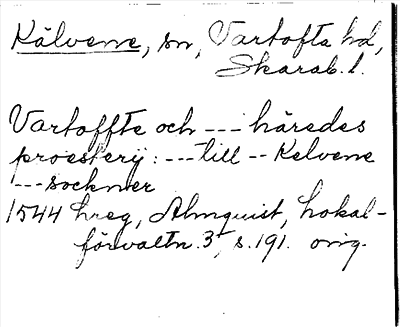 Kälvene, sn, Vartofta hd,
Skarab. l.
Vartoffte och --- häredes
proesterij: --- till -- Kelvene
--- sockner
1544 hreg, Almquist, Lokal-
förvaltn. 3, s. 191. orig.